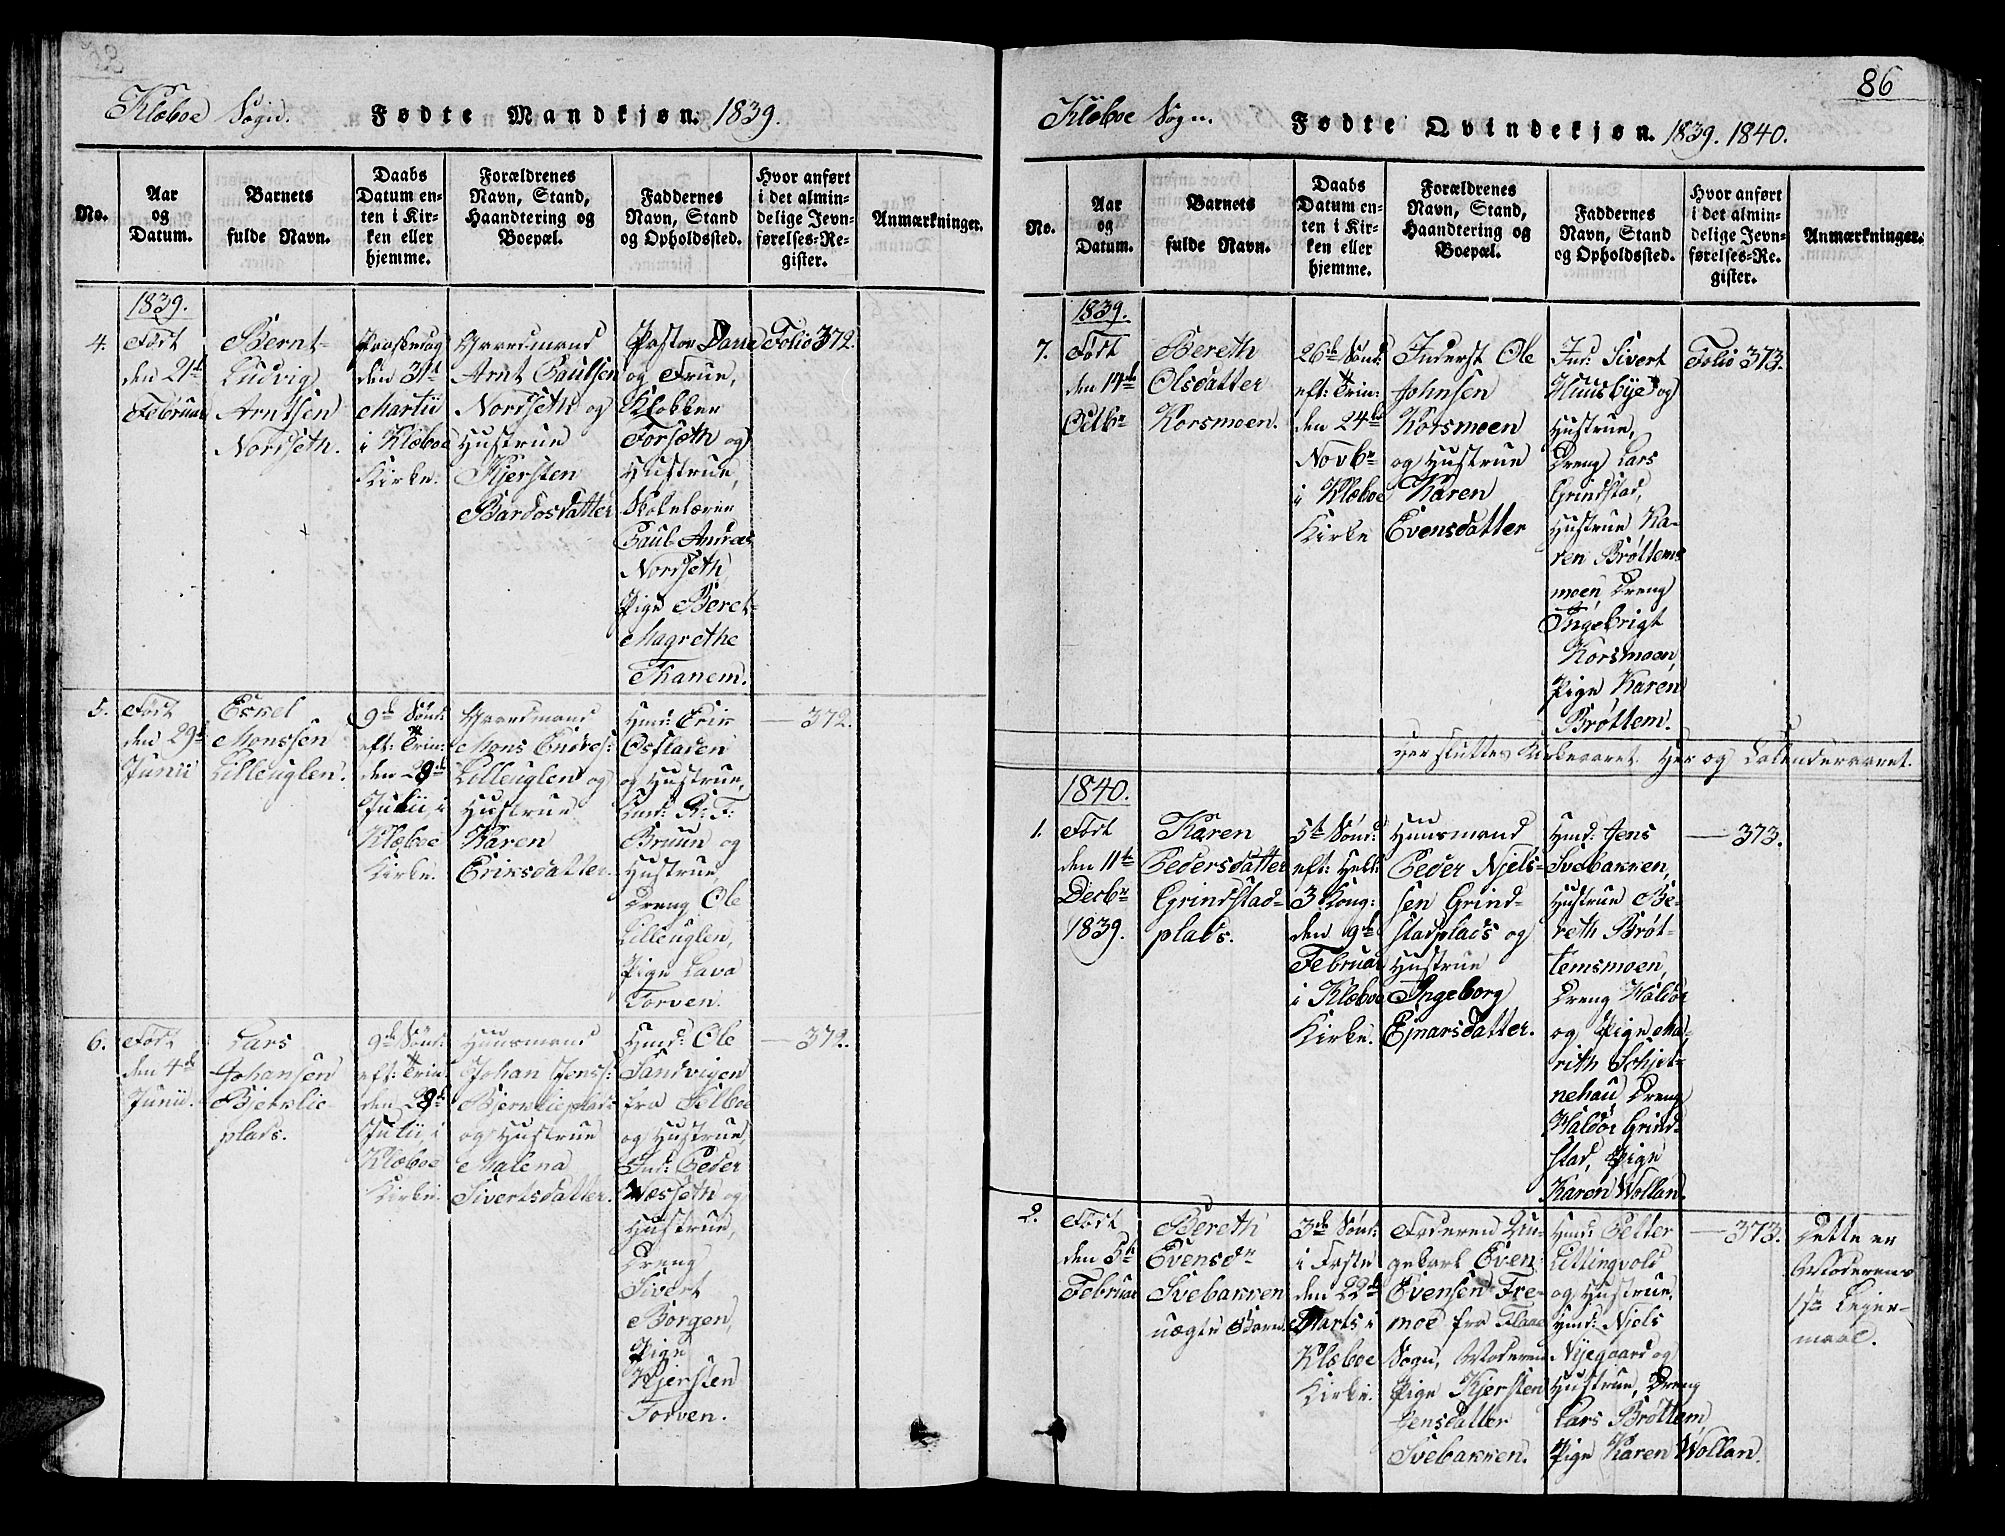 Klæboe Sogn. Fødte Mandkjøn. 1839.
No.
Aar
og
Datum.
Barnets
fulde Navn.
Daabs
Datum en-
ten i Kir-
ken eller
hjemme.
Forældrenes
Navn, Stand,
Haandtering og
Boepæl.
Faddernes
Navn, Stand
og Opholdssted.
Hvor anført
i det almin-
delige Jevn-
førelses-Re-
gister.
Anmærkninger.
1839.
4.
Født
den 21de
Februar
Bernt
Ludvig
Arntsen
Nordseth.
Paaskedag
den 31te
Martii
i Klæboe
Kirke.
Gaardmand
Arnt Paulsen
Nordseth og
Hustrue
Kjersten
Bardosdatter
Pastor Dane
og Frue,
Klokker
Forseth og
Hustrue,
Skolelærer
Paul Andreas
Nordseth,
Pige Beret
Magrethe
Thanem.
Folio 372.
5.
Født
den 29de
Junii
Eskel
Monssen
Lilleuglen.
9de Sønd:
eft: Trin:
den 28de
Julii, i
Klæboe
Kirke.
Gaardmand
Mons Endres:
Lilleuglen og
Hustrue
Karen
Eriksdatter.
Hmd: Erik
Osfladen
og Hustrue,
Lmd: R: F:
Bruun og
Hustrue,
Dreng Ole
Lilleuglen,
Pige Lava
Torven.
— 372.
6.
Født
den 4de
Junii.
Lars
Johansen
Bjerklie-
plads.
9de Sønd:
eft: Trin:
den 28de
Julii, i
Klæboe
Kirke.
Huusmand
Johan Jenss:
Bjerklieplads
og Hustrue
Malena
Sivertsdatter.
Hmd: Ole
Sandvigen
fra Selboe
og Hustrue,
Ind: Peder
Næsseth og
Hustrue,
Dreng
Sivert
Borgen,
Pige
Kjersten
Torven.
— 372.
86
Klæboe Sogn. Fødte Qvindekjøn. 1839. 1840.
No.
Aar
og
Datum.
Barnets
fulde Navn.
Daabs
Datum en-
ten i Kir-
ken eller
hjemme.
Forældrenes
Navn, Stand,
Haandtering og
Boepæl.
Faddernes
Navn, Stand
og Opholdssted.
Hvor anført
i det almin-
delige Jevn-
førelses-Re-
gister.
Anmærkninger.
1839.
7.
Født
den 14de
Octbr
Bereth
Olsdatter
Korsmoen.
26de Sønd:
eft: Trin:
den 24de
Novbr
i Klæboe
Kirke
Inderst Ole
Johnsen
Korsmoen
og Hustrue
Karen
Evensdatter
Ind: Sivert
Huusbye og
Hustrue,
Dreng Lars
Grindstad,
Hustrue Ka-
ren Brøttems
moen, Dreng
Ingebrigt
Korsmoen,
Pige Karen
Brøttem.
Folio 373.
Her sluttes Kirkeaaret. Her og Calenderaaret.
1840.
1.
Født
den 11te
Decbr
1839.
Karen
Pedersdatter
Grindstad-
plads.
5te Sønd:
eft: Hell:
3 Kong:
den 9de
Februar
i Klæboe
Kirke.
Huusmand
Peder Njels-
sen Grind-
stadplads og
Hustrue
Ingeborg
Ejnarsdatter.
Hmd: Jens
Svebakken,
Hustrue Be-
reth Brøt-
temsmoen,
Dreng Haldor
og Pige Ma-
rith Schjet-
nehau, Dreng
Haldor Grind-
stad, Pige
Karen Wollan.
— 373.
2.
Født
den 5te
Februar
Bereth
Evensdr
Svebakken
uægte Barn.
3de Sønd:
i Faste
den 22de
Marts i
Klæboe
Kirke.
Faderen Un-
gekarl Even
Evensen Fre-
moe fra Flaae
Sogn, Moderen
Pige Kjersten
Jensdatter
Svebakken.
Hmd: Petter
Littingvold
og Hustrue,
Hmd: Njels
Nyegaard og
Hustrue, Dreng
Lars Brøttem
Pige Karen Wollan.
— 373.
Dette er
Moderens
1ste Lejer-
maal.